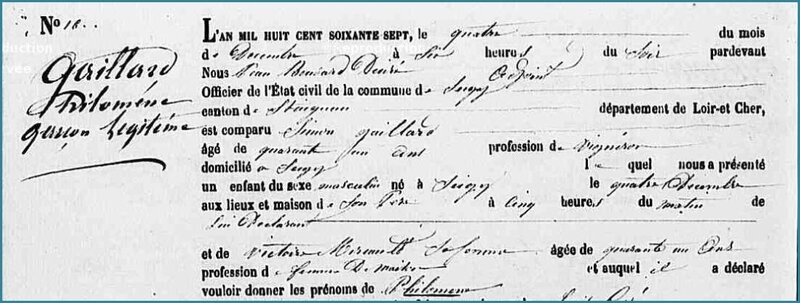 No 18.
Gaillard
Philomène
garçon Legitime
L'AN MIL HUIT CENT SOIXANTE SEPT, le quatre du mois
de Decembre à Six heures du Soir pardevant
Nous Jean Desiré Adjoint
Officier de l'État civil de la commune de Seigy
canton de St aignan département de Loir-et Cher,
est comparu Simon Gaillard
âgé de quarante un ans profession de vigneron
domicilié a Seigy le quel nous a présenté
un enfant du sexe masculin né à Seigy le quatre Decembre
aux lieux et maison de Son Père à Cinq heures du matin de
lui Declarant
et de Victoire Sa femme âgée de quarante un ans
profession de femme De et auquel il a déclaré
vouloir donner les prénoms de Philomène